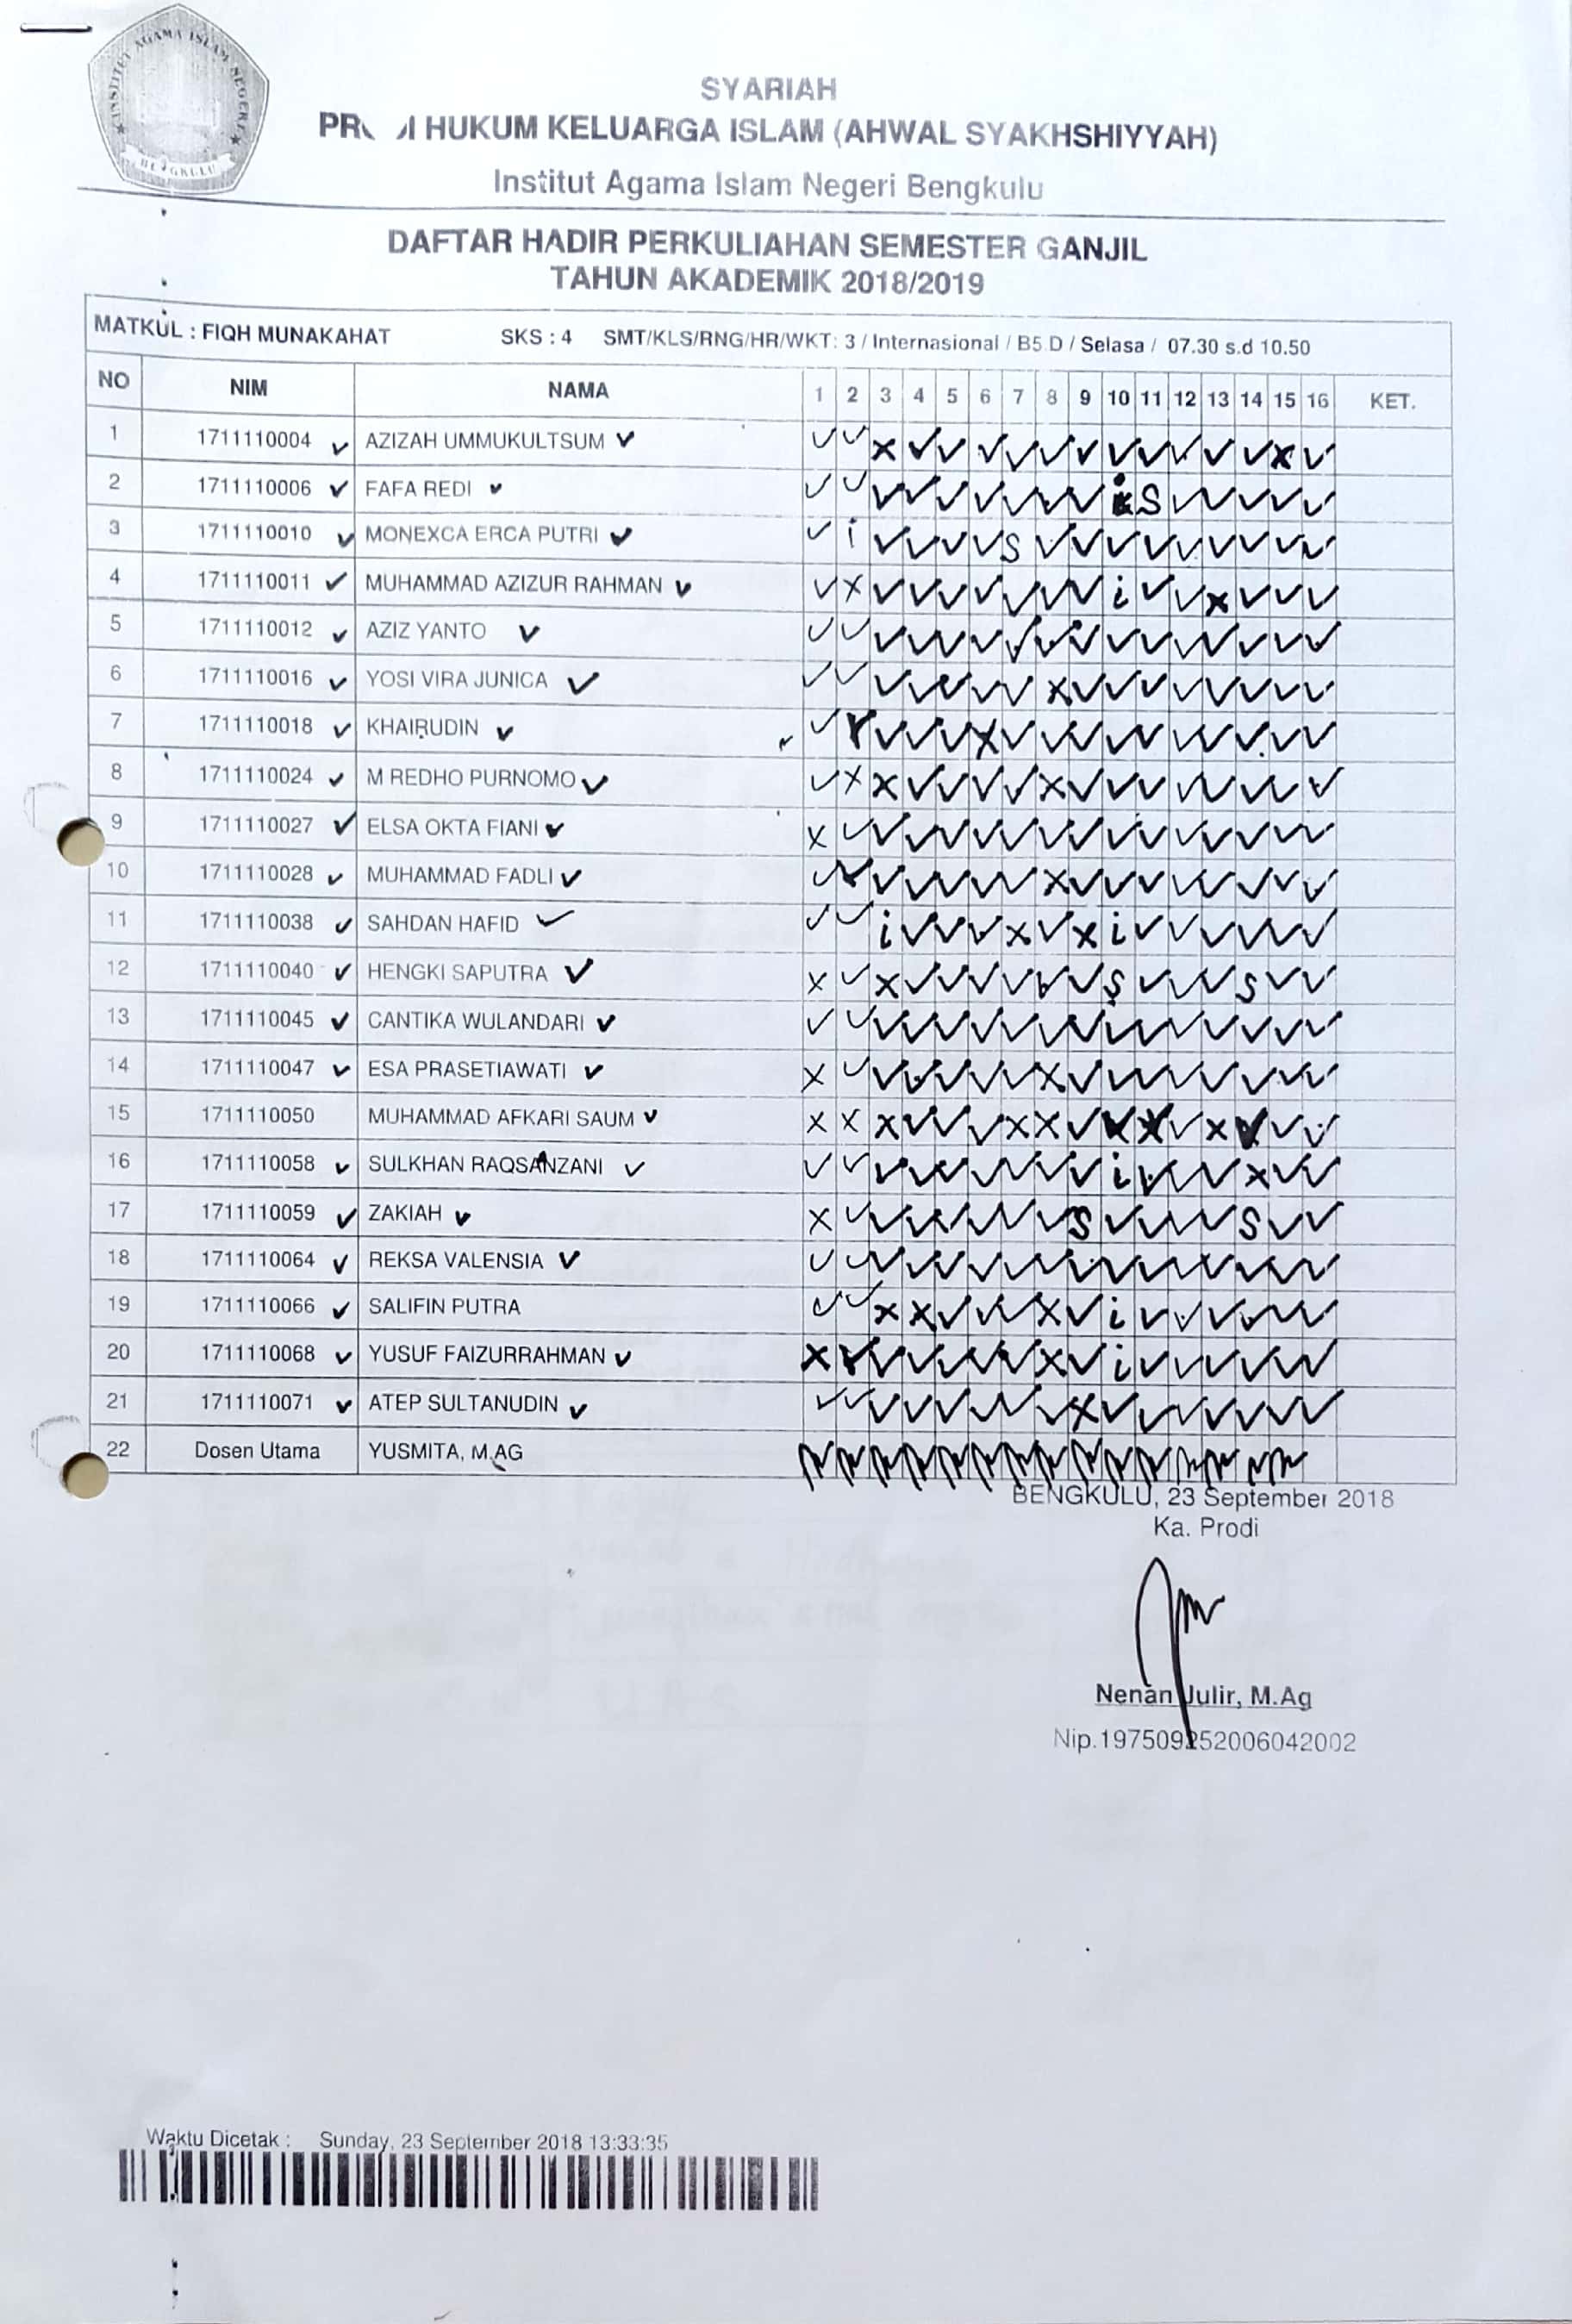 INSTITUT AGAMA ISLAM NEGERI
BENGKULU
SYARIAH
HUKUM KELUARGA ISLAM (AHWAL SYAKHSHIYYAH)
Institut Agama Islam Negeri Bengkulu
DAFTAR HADIR PERKULIAHAN SEMESTER GANJIL
TAHUN AKADEMIK 2018/2019
MATKUL : FIQH MUNAKAHAT SKS : 4 SMT/KLS/RNG/HR/WKT: 3 / Internasional / B5.D / Selasa / 07.30 s.d 10.50
NO NIM NAMA 1 2 3 4 5 6 7 8 9 10 11 12 13 14 15 16 KET.
1 1711110004 AZIZAH UMMUKULTSUM
2 1711110006 FAFA REDI S
3 1711110010 MONEXCA ERCA PUTRI i S
4 1711110011 MUHAMMAD AZIZUR RAHMAN i
5 1711110012 AZIZ YANTO
6 1711110016 YOSI VIRA JUNICA
7 1711110018 KHAIRUDIN
8 1711110024 M REDHO PURNOMO
9 1711110027 ELSA OKTA FIANI
10 1711110028 MUHAMMAD FADLI
11 1711110038 SAHDAN HAFID i i
12 1711110040 HENGKI SAPUTRA S S
13 1711110045 CANTIKA WULANDARI
14 1711110047 ESA PRASETIAWATI
15 1711110050 MUHAMMAD AFKARI SAUM
16 1711110058 SULKHAN RAQSANZANI i
17 1711110059 ZAKIAH S S
18 1711110064 REKSA VALENSIA
19 1711110066 SALIFIN PUTRA i
20 1711110068 YUSUF FAIZURRAHMAN i
21 1711110071 ATEP SULTANUDIN
22 Dosen Utama YUSMITA, M.AG
BENGKULU, 23 September 2018
Ka. Prodi
Nenan Julir, M.Ag
Nip.197509252006042002
Waktu Dicetak : Sunday, 23 September 2018 13:33:35